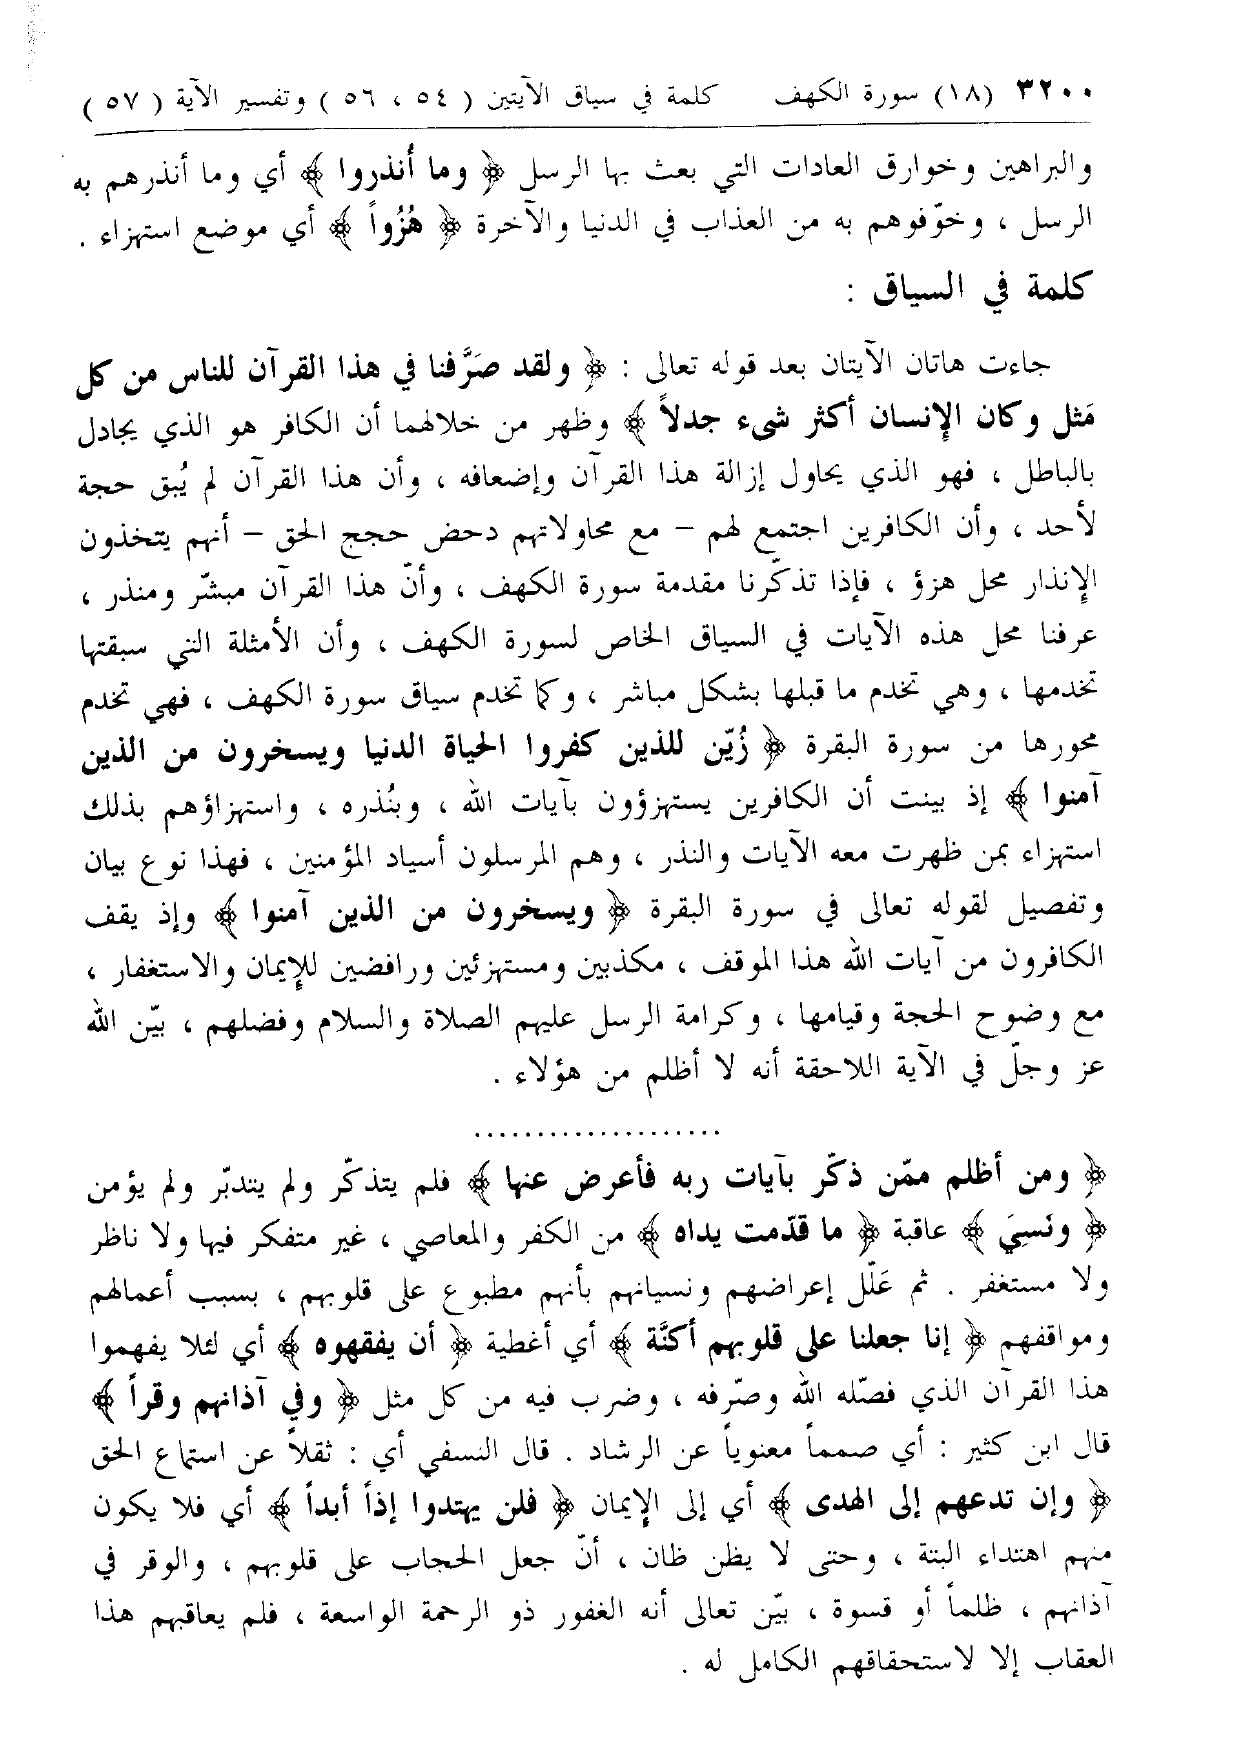 ٣٢٠٠ (١٨) سورة الكهف كلمة في سياق الآيتين ( ٥٤ ، ٥٦ ) وتفسير الآية ( ٥٧ )
والبراهين وخوارق العادات التي بعث بها الرسل ﴿ وما أُنذروا ﴾ أي وما أنذرهم به
الرسل ، وخوّفوهم به من العذاب في الدنيا والآخرة ﴿ هُزُواً ﴾ أي موضع استهزاء .
كلمة في السياق :
جاءت هاتان الآيتان بعد قوله تعالى : ﴿ ولقد صَرَّفنا في هذا القرآن للناس من كل
مَثل وكان الإنسان أكثر شيء جدلاً ﴾ وظهر من خلالهما أن الكافر هو الذي يجادل
بالباطل ، فهو الذي يحاول إزالة هذا القرآن وإضعافه ، وأن هذا القرآن لم يُبق حجة
لأحد ، وأن الكافرين اجتمع لهم – مع محاولاتهم دحض حجج الحق – أنهم يتخذون
الإنذار محل هزؤ ، فإذا تذكّرنا مقدمة سورة الكهف ، وأنّ هذا القرآن مبشّر ومنذر ،
عرفنا محل هذه الآيات في السياق الخاص لسورة الكهف ، وأن الأمثلة التي سبقتها
تخدمها ، وهي تخدم ما قبلها بشكل مباشر ، وكما تخدم سياق سورة الكهف ، فهي تخدم
محورها من سورة البقرة ﴿ زُيّن للذين كفروا الحياة الدنيا ويسخرون من الذين
آمنوا ﴾ إذ بينت أن الكافرين يستهزؤون بآيات الله ، وبنُذره ، واستهزاؤهم بذلك
استهزاء بمن ظهرت معه الآيات والنذر ، وهم المرسلون أسياد المؤمنين ، فهذا نوع بيان
وتفصيل لقوله تعالى في سورة البقرة ﴿ ويسخرون من الذين آمنوا ﴾ وإذ يقف
الكافرون من آيات الله هذا الموقف ، مكذبين ومستهزئين ورافضين للإيمان والاستغفار ،
مع وضوح الحجة وقيامها ، وكرامة الرسل عليهم الصلاة والسلام وفضلهم ، بيّن الله
عز وجلّ في الآية اللاحقة أنه لا أظلم من هؤلاء .
....................
﴿ ومن أظلم ممّن ذكّر بآيات ربه فأعرض عنها ﴾ فلم يتذكّر ولم يتدبّر ولم يؤمن
﴿ ونَسِيَ ﴾ عاقبة ﴿ ما قدّمت يداه ﴾ من الكفر والمعاصي ، غير متفكر فيها ولا ناظر
ولا مستغفر . ثم عَلّل إعراضهم ونسيانهم بأنهم مطبوع على قلوبهم ، بسبب أعمالهم
ومواقفهم ﴿ إنا جعلنا على قلوبهم أكنَّة ﴾ أي أغطية ﴿ أن يفقهوه ﴾ أي لئلا يفهموا
هذا القرآن الذي فصّله الله وصرّفه ، وضرب فيه من كل مثل ﴿ وفي آذانهم وقراً ﴾
قال ابن كثير : أي صمماً معنوياً عن الرشاد . قال النسفي أي : ثقلاً عن استماع الحق
﴿ وإن تدعهم إلى الهدى ﴾ أي إلى الإيمان ﴿ فلن يهتدوا إذاً أبداً ﴾ أي فلا يكون
منهم اهتداء البتة ، وحتى لا يظن ظان ، أنّ جعل الحجاب على قلوبهم ، والوقر في
آذانهم ، ظلماً أو قسوة ، بيّن تعالى أنه الغفور ذو الرحمة الواسعة ، فلم يعاقبهم هذا
العقاب إلا لاستحقاقهم الكامل له .